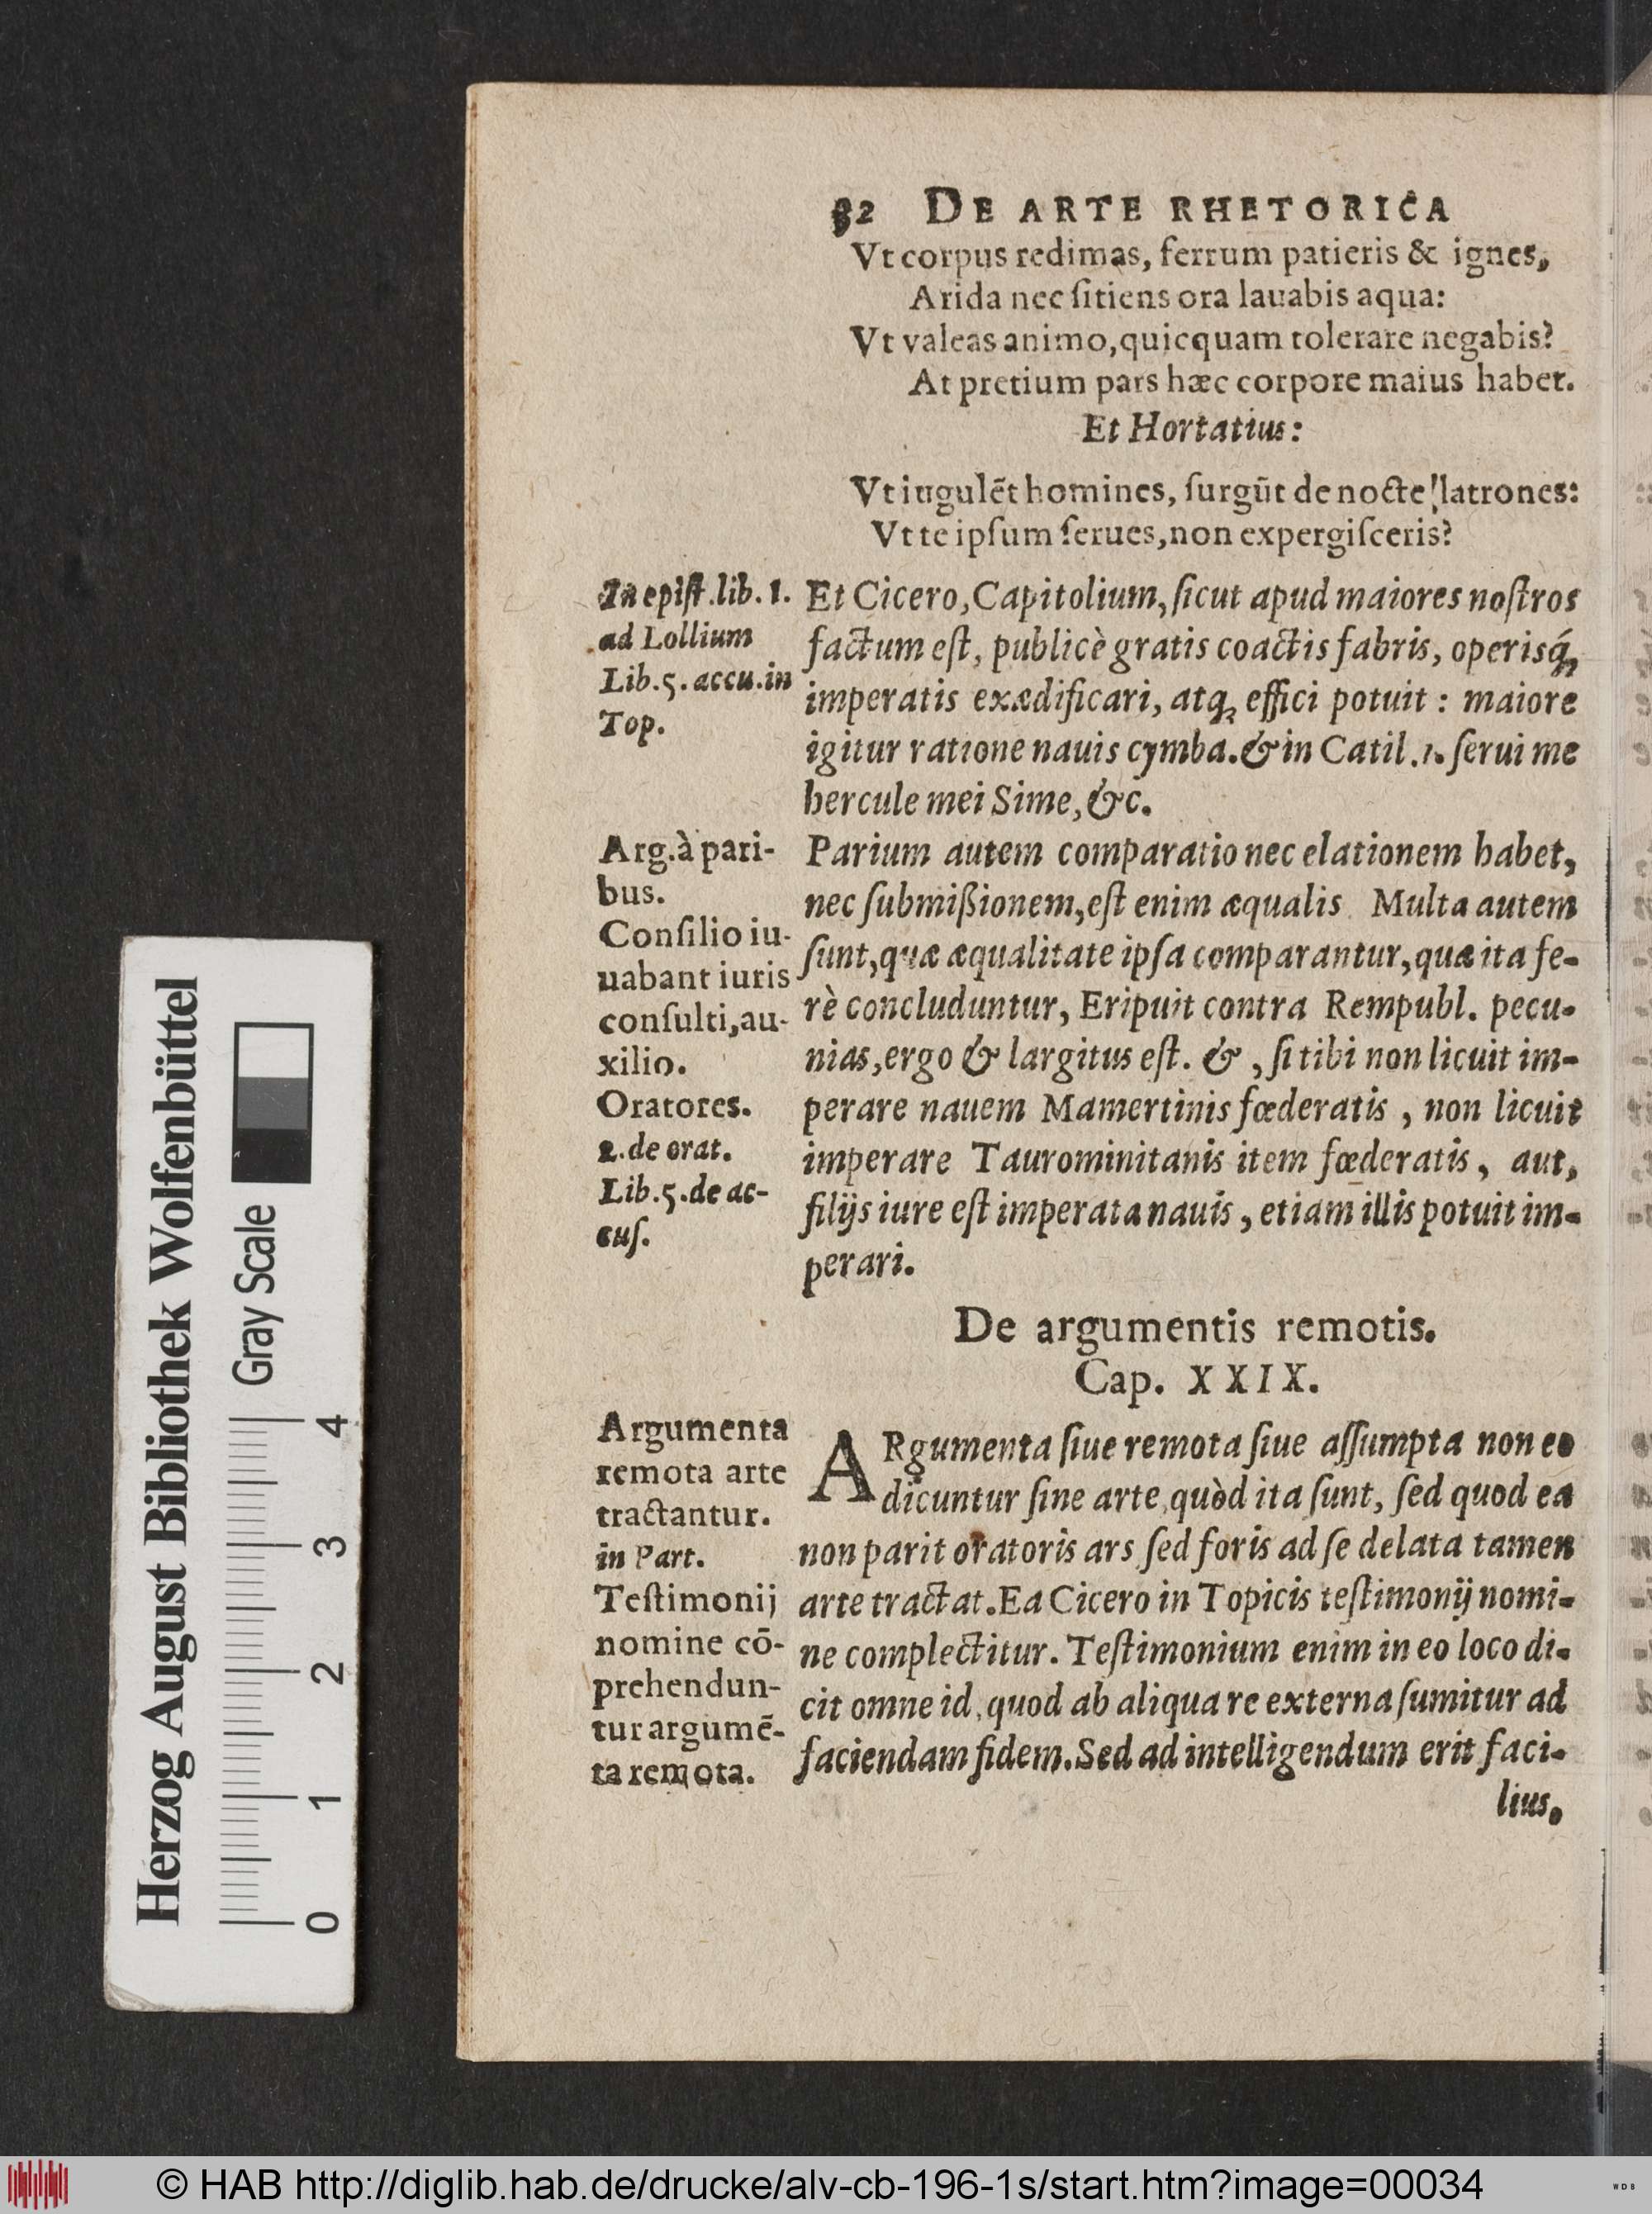 32 DE ARTE RHETORICA
Vt corpus redimas, ferrum patieris & ignes,
Arida nec ſitiens ora lauabis aqua:
Vt valeas animo, quicquam tolerare negabis?
At pretium pars hæc corpore maius habet.
Et Hortatius:
Vt iugulēt homines, ſurgūt de nocte latrones:
Vt te ipſum ſerues, non expergiſceris?
In epiſt. lib. 1.
ad Lollium
Lib. 5. accu. in
Top.
Et Cicero, Capitolium, ſicut apud maiores noſtros
factum eſt, publicè gratis coactis fabris, operisq́;
imperatis exædificari, atq; effici potuit : maiore
igitur ratione nauis cymba. & in Catil. 1. ſerui me
hercule mei Sime, &c.
Arg. à pari-
bus.
Conſilio iu-
uabant iuris
conſulti, au-
xilio.
Oratores.
2. de orat.
Lib. 5. de ac-
cuſ.
Parium autem comparatio nec elationem habet,
nec ſubmißionem, eſt enim æqualis Multa autem
ſunt, quæ æqualitate ipſa comparantur, quæ ita fe-
rè concluduntur, Eripuit contra Rempubl. pecu-
nias, ergo & largitus eſt. & , ſi tibi non licuit im-
perare nauem Mamertinis fœderatis , non licuit
imperare Taurominitanis item fœderatis, aut,
filijs iure eſt imperata nauis, etiam illis potuit im-
perari.
De argumentis remotis.
Cap. XXIX.
Argumenta
remota arte
tractantur.
in Part.
Teſtimonij
nomine cō-
prehendun-
tur argumē-
ta remota.
ARgumenta ſiue remota ſiue aſſumpta non eo
dicuntur ſine arte, quòd ita ſunt, ſed quod ea
non parit oratoris ars ſed foris ad ſe delata tamen
arte tractat. Ea Cicero in Topicis teſtimonij nomi-
ne complectitur. Teſtimonium enim in eo loco di-
cit omne id, quod ab aliqua re externa ſumitur ad
faciendam fidem. Sed ad intelligendum erit faci-
lius,
Herzog August Bibliothek Wolfenbüttel
Gray Scale
0 1 2 3 4
© HAB http://diglib.hab.de/drucke/alv-cb-196-1s/start.htm?image=00034
WDB